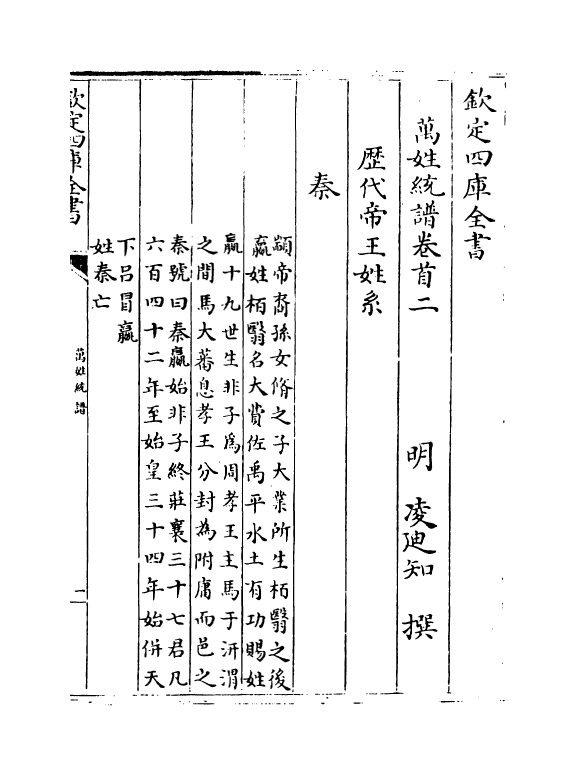 欽定四庫全書
萬姓統譜卷首二
明 凌迪知 撰
歴代帝王姓系
秦
顓帝裔孫女脩之子大業所生栢翳之後
嬴姓栢翳名大費佐禹平水土有功賜姓
嬴十九世生非子為周孝王主馬于汧渭
之間馬大蕃息孝王分封為附庸而邑之
秦號曰秦嬴始非子終莊襄三十七君凡
六百四十二年至始皇三十四年始併天
下吕冒嬴
姓秦亡
欽定四庫全書
萬姓統譜
二